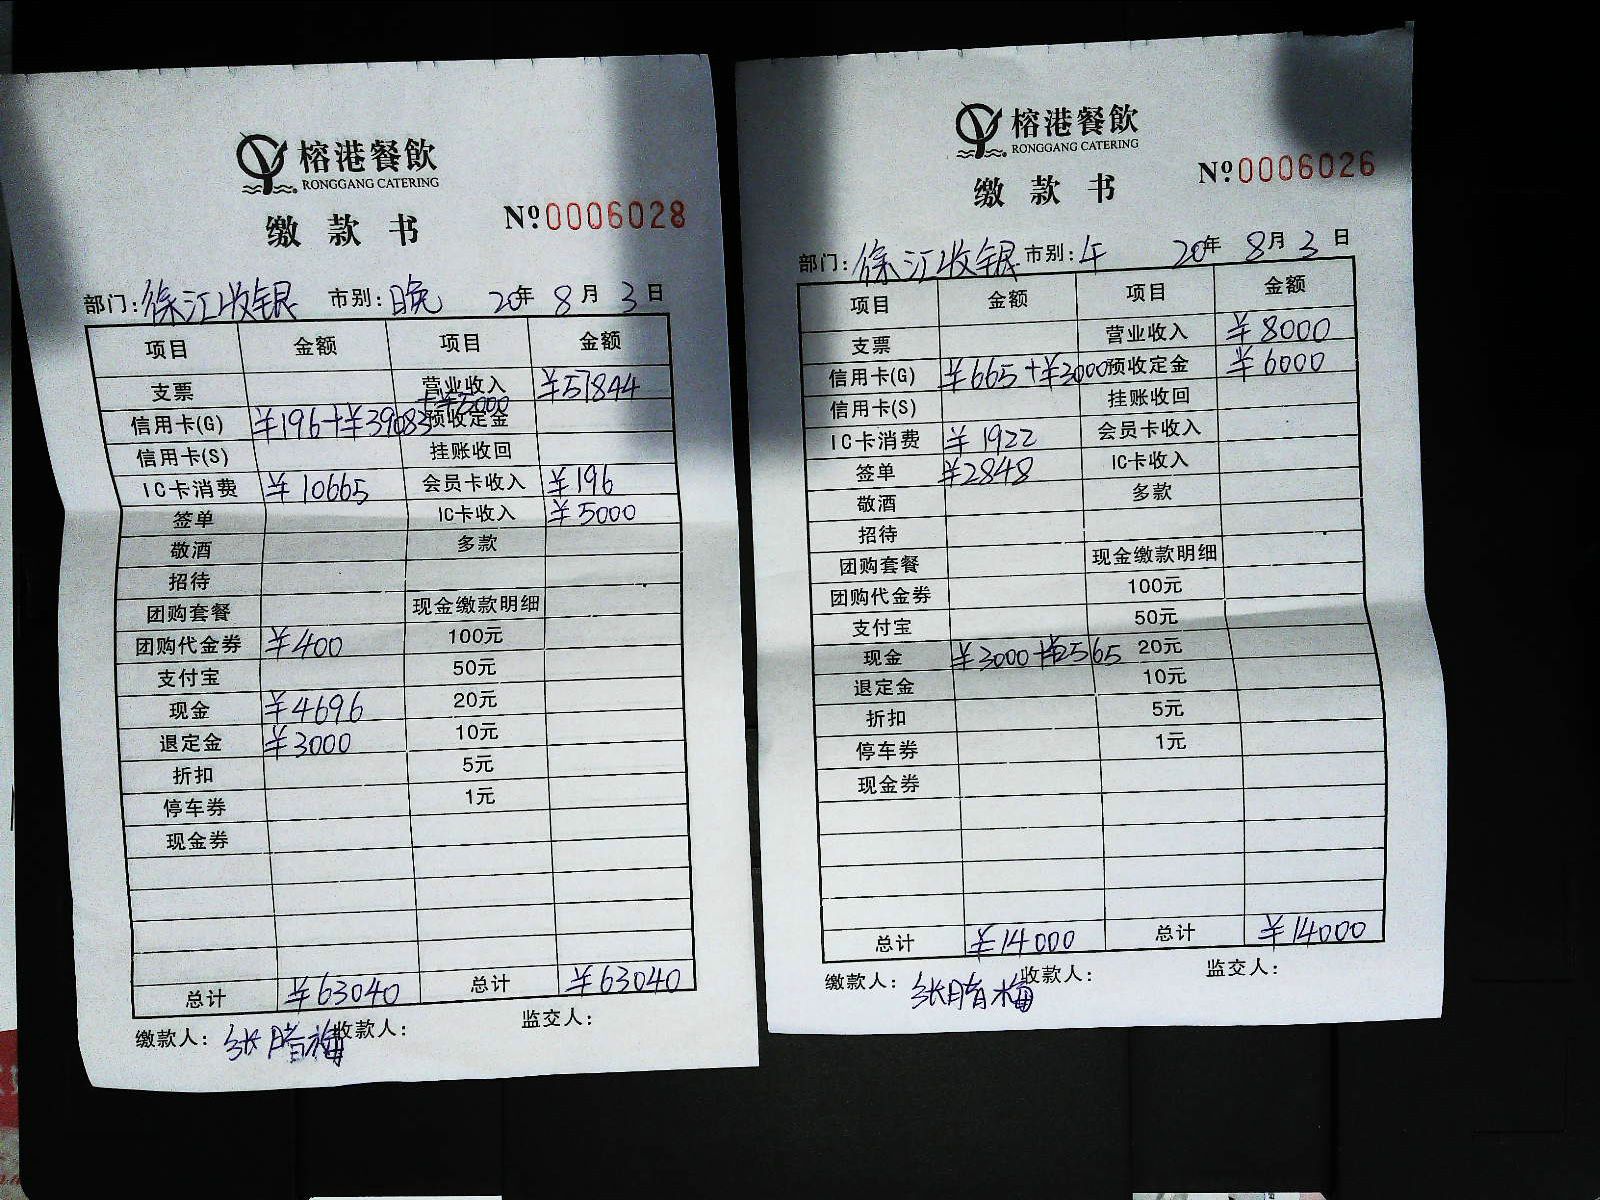 榕港餐飲
RONGGANG CATERING
缴款书
Nº0006028
部门: 徐江收银 市别: 晚 20年 8月 3日
项目 金额 项目 金额
支票 营业收入 ¥57844
信用卡(G) ¥196+¥39083+¥5000 预收定金
信用卡(S) 挂账收回
IC卡消费 ¥10665 会员卡收入 ¥196
签单 IC卡收入 ¥5000
敬酒 多款
招待
团购套餐 现金缴款明细
团购代金券 ¥400 100元
支付宝 50元
现金 ¥4696 20元
退定金 ¥3000 10元
折扣 5元
停车券 1元
现金券
总计 ¥63040 总计 ¥63040
缴款人: 张腊梅 收款人: 监交人:
榕港餐飲
RONGGANG CATERING
缴款书
Nº0006026
部门: 徐江收银 市别: 午 20年 8月 3日
项目 金额 项目 金额
支票 营业收入 ¥8000
信用卡(G) ¥665+¥3000 预收定金 ¥6000
信用卡(S) 挂账收回
IC卡消费 ¥1922 会员卡收入
签单 ¥2848 IC卡收入
敬酒 多款
招待
团购套餐 现金缴款明细
团购代金券 100元
支付宝 50元
现金 ¥3000+¥2565 20元
退定金 10元
折扣 5元
停车券 1元
现金券
总计 ¥14000 总计 ¥14000
缴款人: 张腊梅 收款人: 监交人: